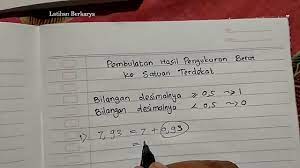 Latihan Berkarya
Pembulatan Hasil Pengukuran Berat
ke Satuan Terdekat
Bilangan desimalnya ≥ 0,5 → 1
Bilangan desimalnya < 0,5 → 0
1) 7,93 = 7 + 0,93
=